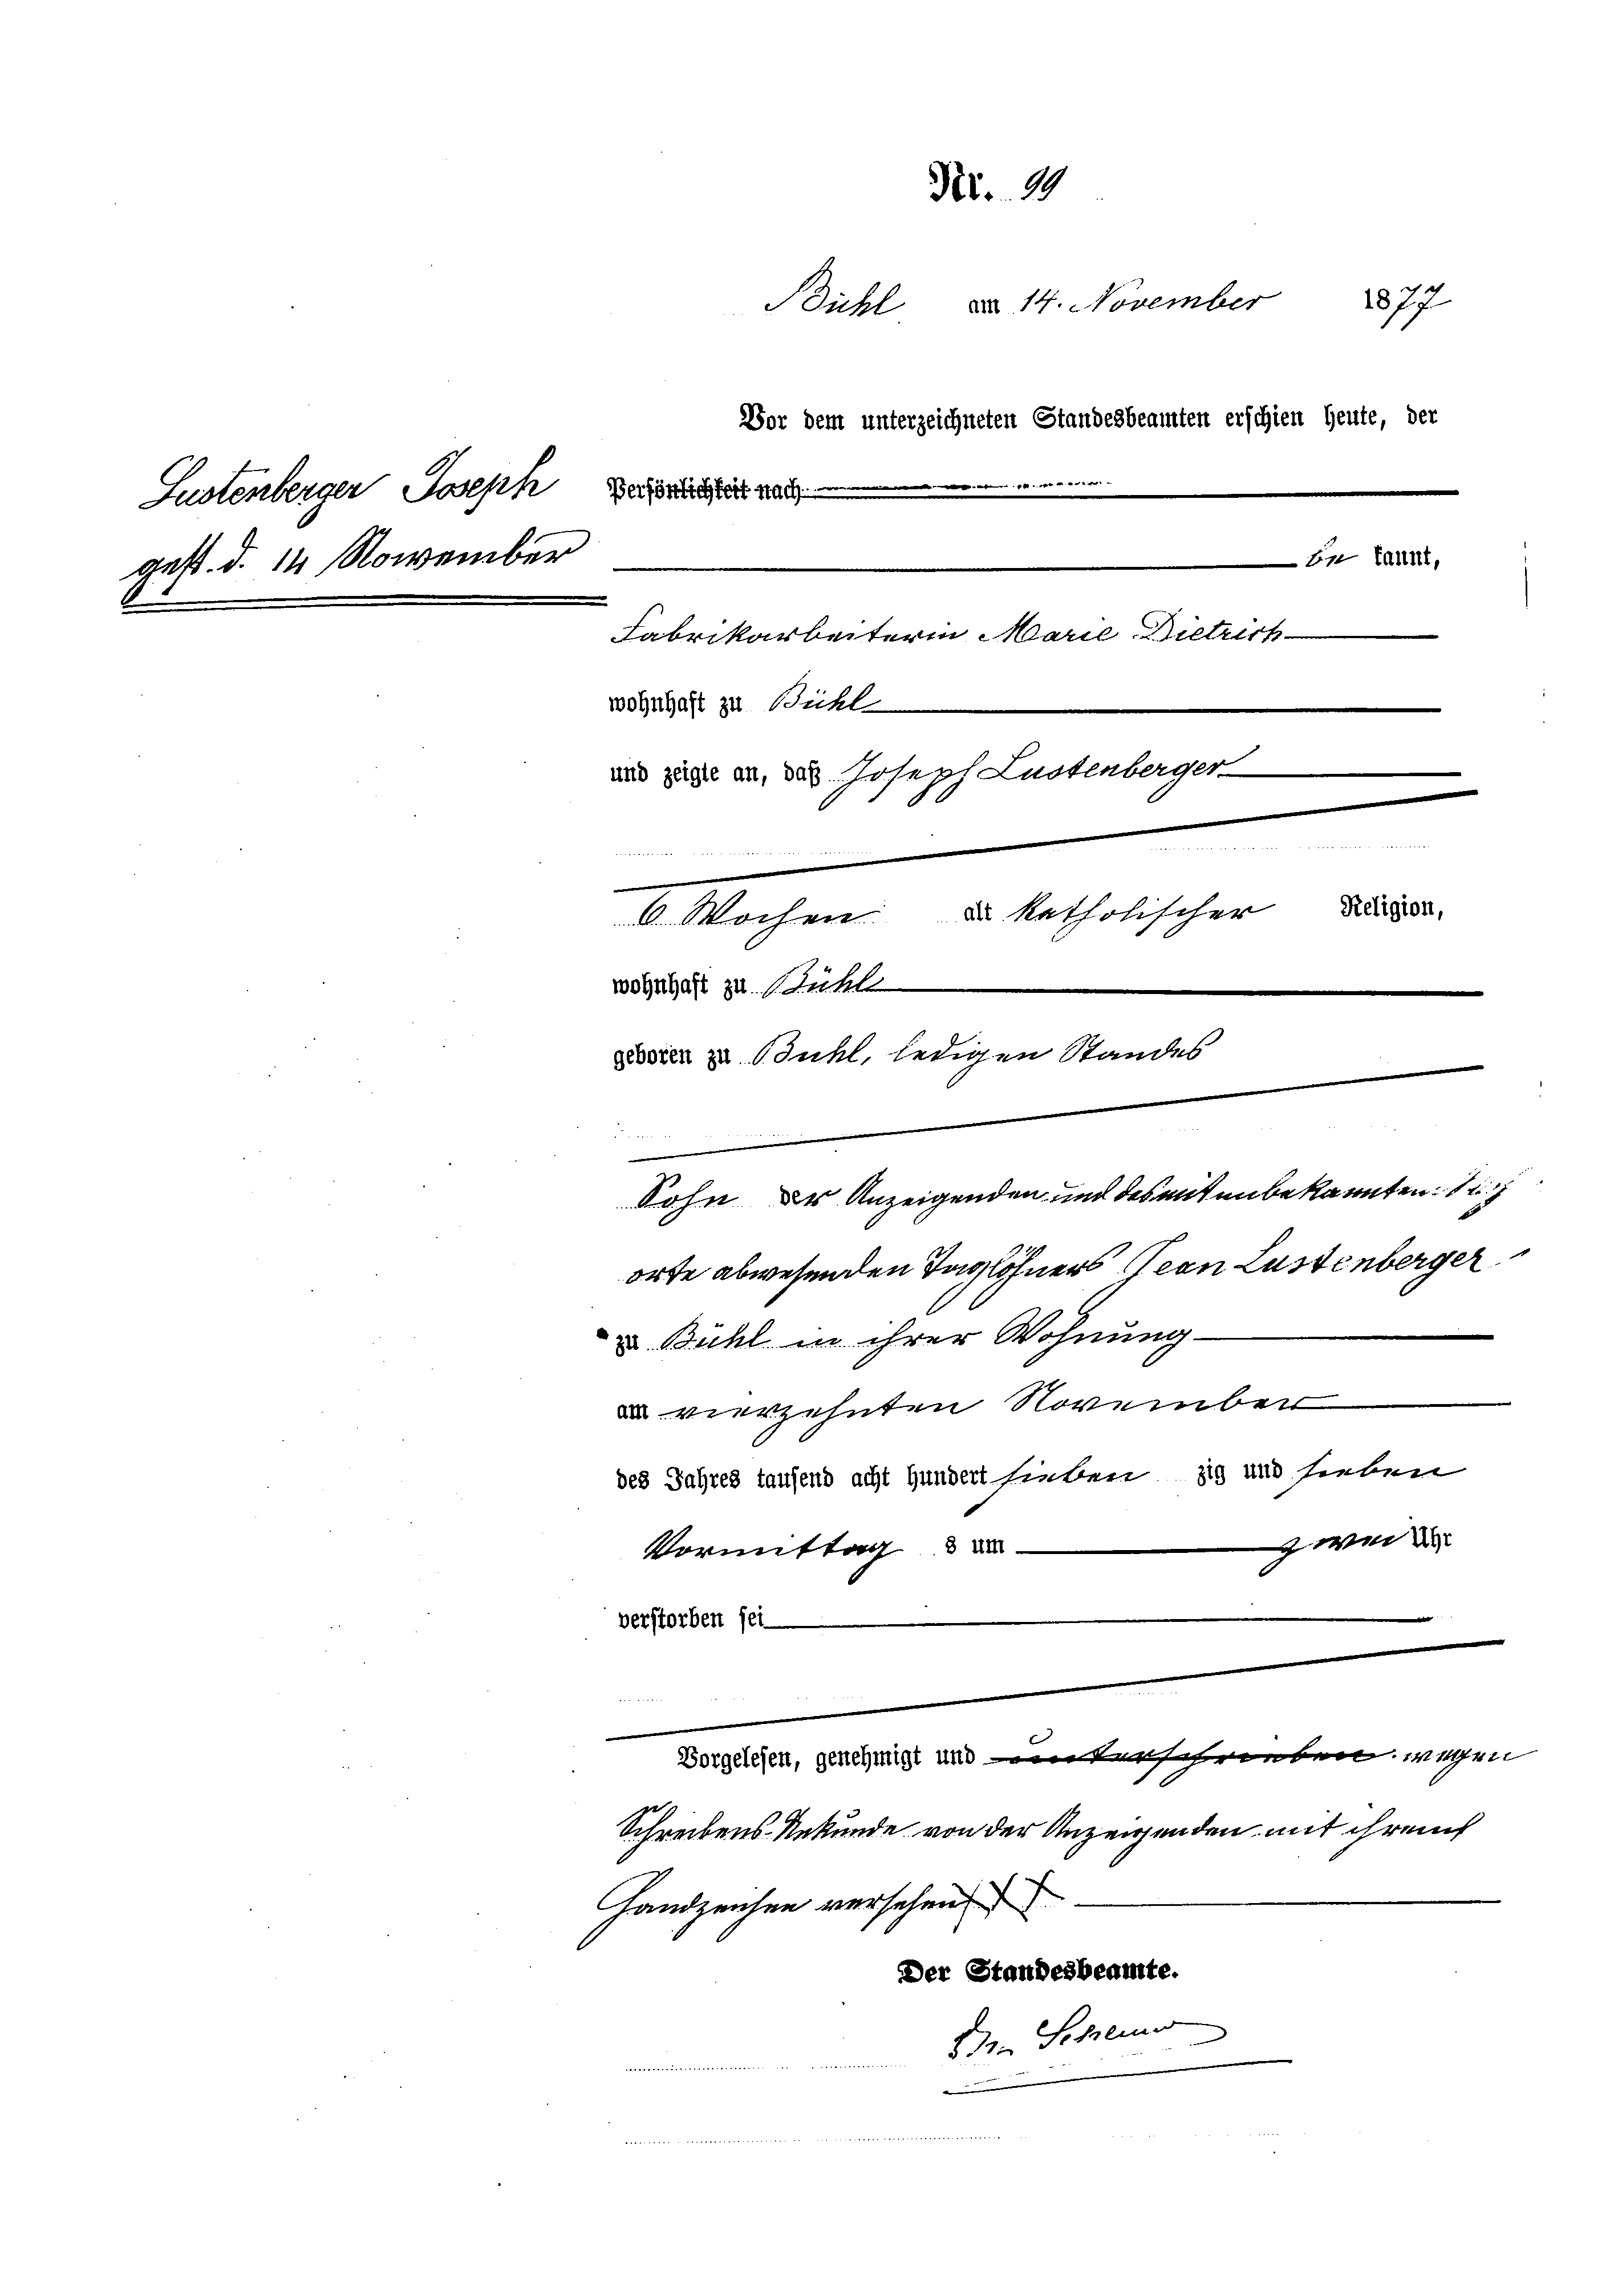 Nr. 99
Bühl am 14. November 1877
Vor dem unterzeichneten Standesbeamten erschien heute, der
Lustenberger Joseph
gest. d. 14 Nowember
Persönlichkeit nach
be kannt,
Fabrikarbeiterin Marie Dietrich
wohnhaft zu Bühl
und zeigte an, daß Joseph Lustenberger
6 Wochen alt katholischer Religion,
wohnhaft zu Bühl
geboren zu Buhl, ledigen Standes
Sohn der Anzeigenden und des mit unbekannten
orte abwesenden Taglöhners Jean Lustenberger
zu Bühl in ihrer Wohnung
am vierzehnten November
des Jahres tausend acht hundert sieben zig und sieben
Vormittag s um zwei Uhr
verstorben sei
Vorgelesen, genehmigt und unterschrieben wegen
Schreibens von der Anzeigenden mit ihrem
Handzeichen versehen
Der Standesbeamte.